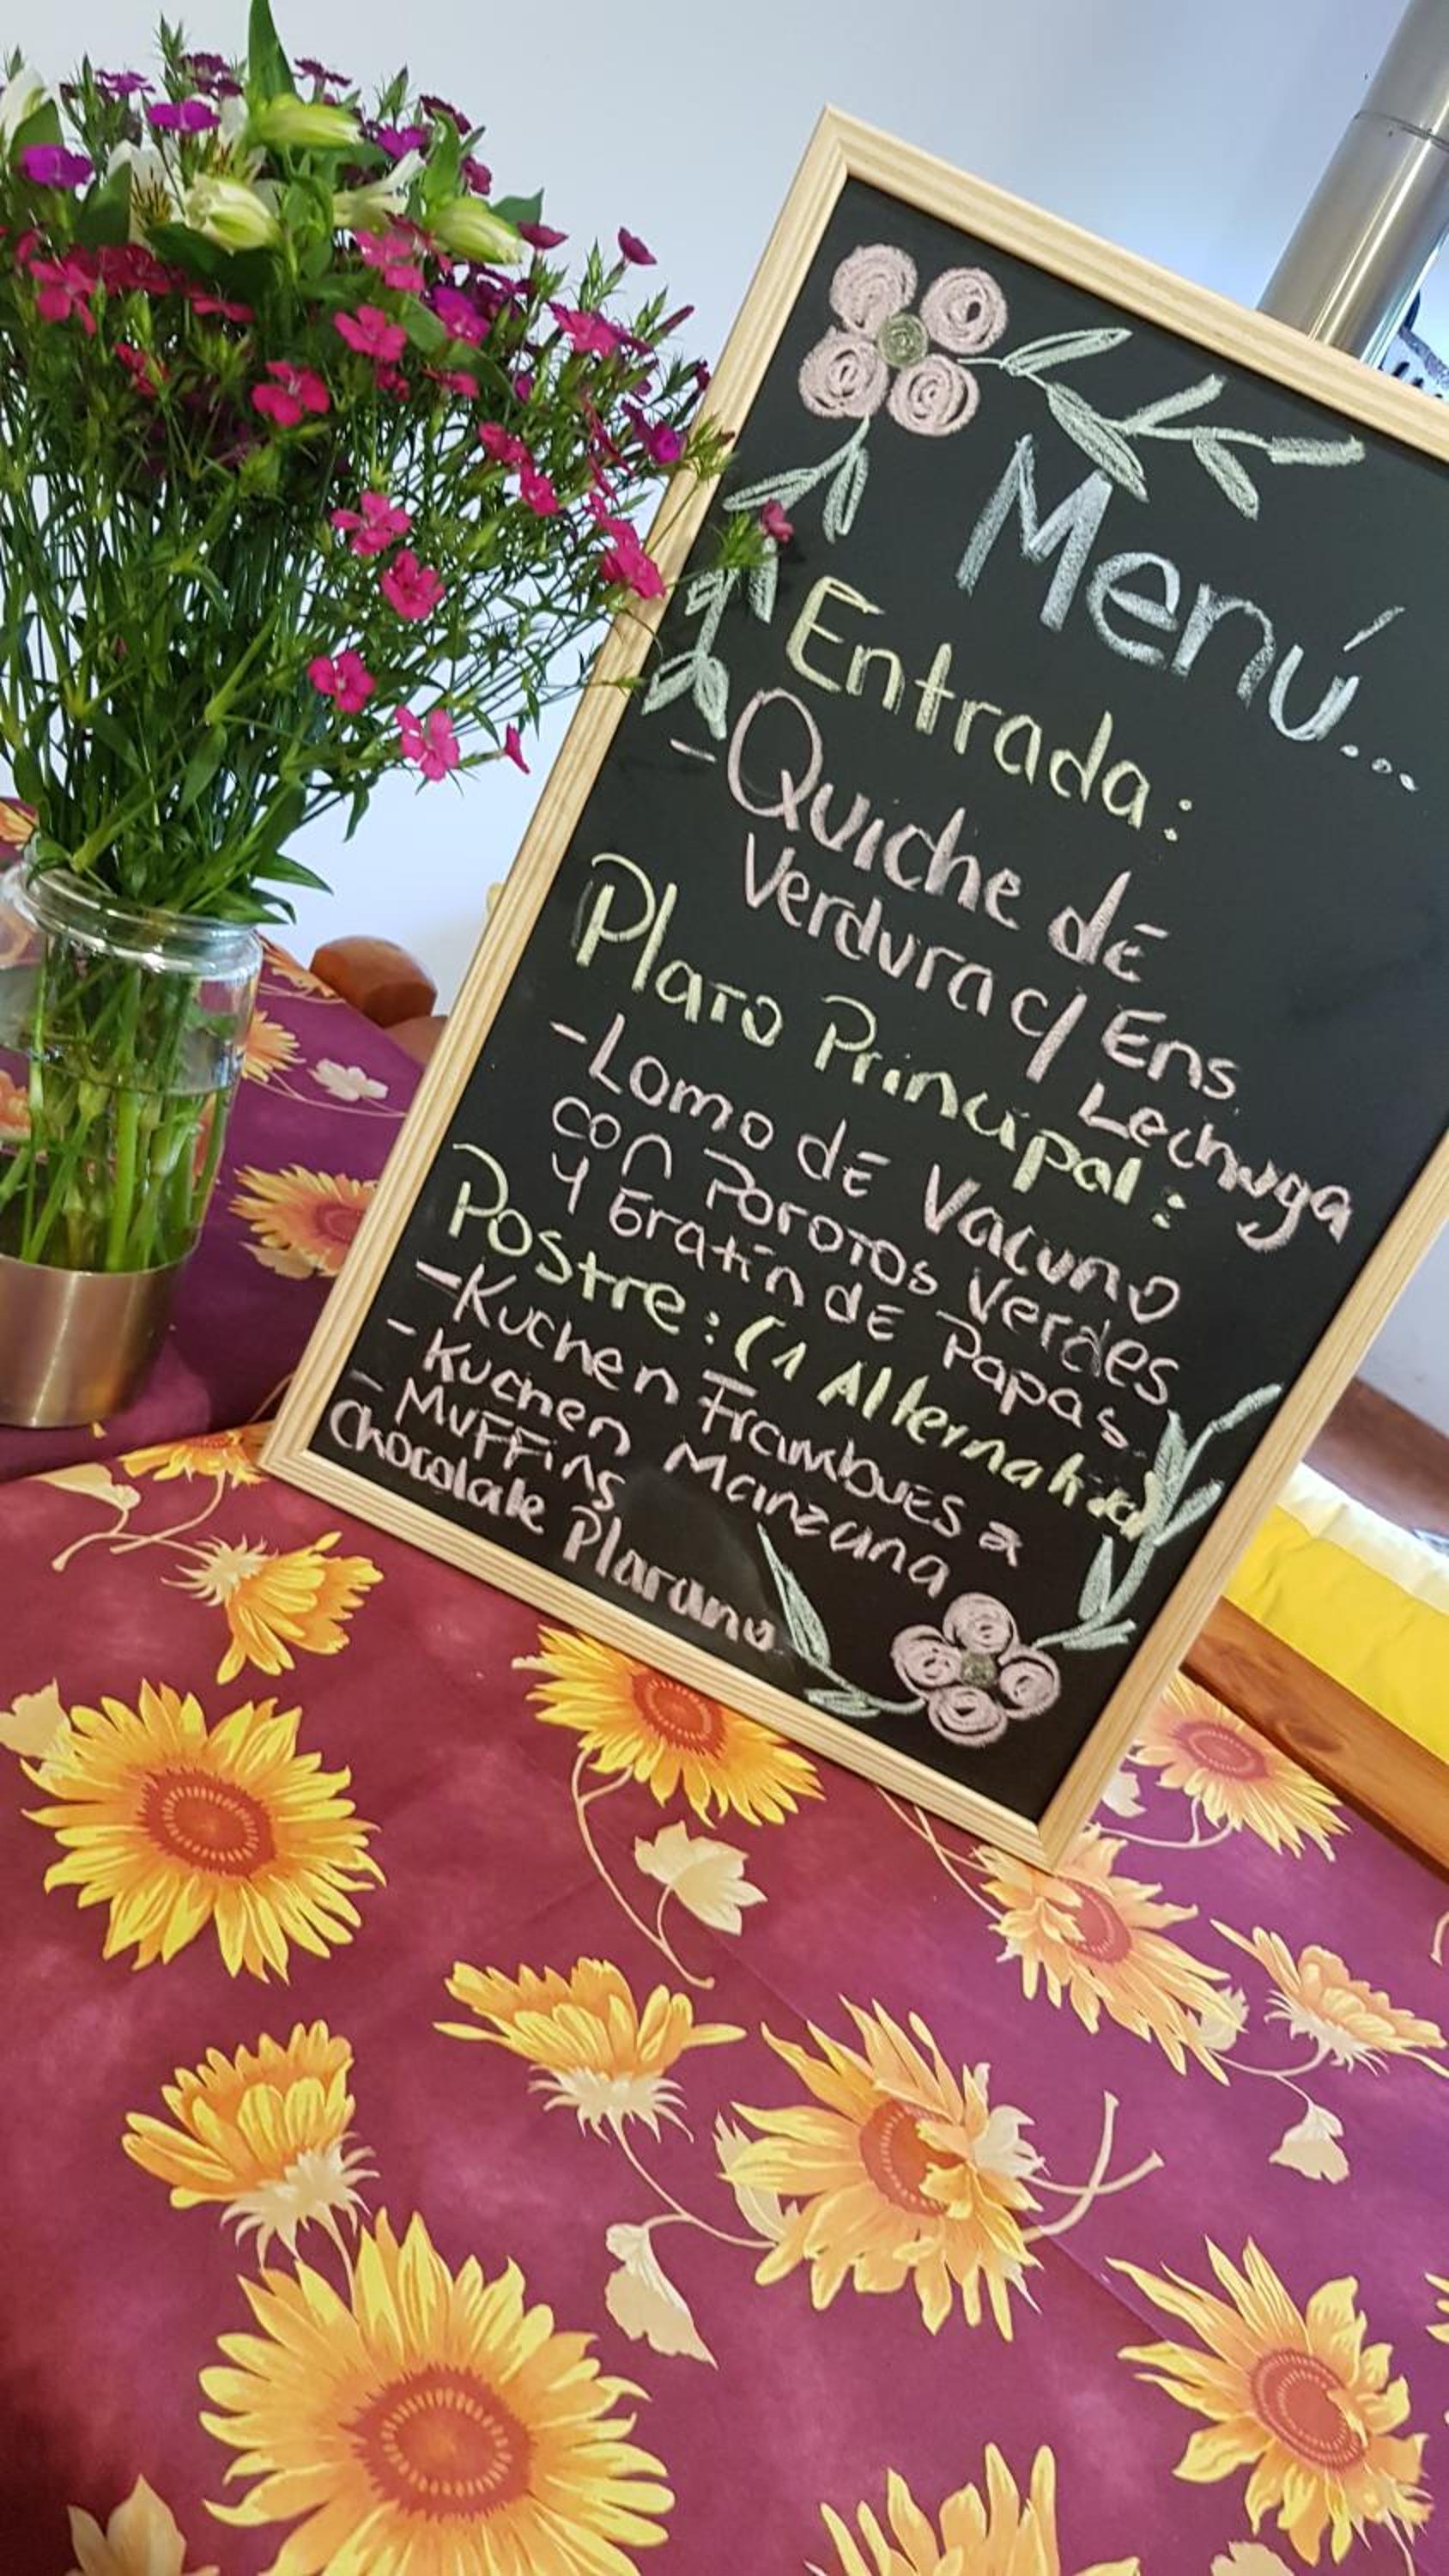 Menú...
Entrada:
- Quiche de
Verdura c/ Ens.
Lechuga
Plato Principal:
- Lomo de Vacuno
con Porotos Verdes
y Gratín de Papas.
Postre: (1 Alternativa)
- Kuchen Frambuesa
- Kuchen Manzana
- Muffins
Chocolate Platano